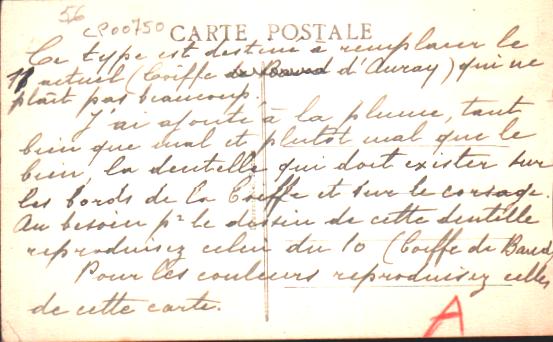 56
CP00750
CARTE POSTALE
Ce type est destiné à remplacer le
11 actuel (Coiffe de Baud d'Auray) qui ne
plaît pas beaucoup.
J'ai ajouté à la plume, tant
bien que mal et plutôt mal que le
bien, la dentelle qui doit exister sur
les bords de la Coiffe et sur le corsage.
Au besoin pr le dessin de cette dentelle
reproduisez celui du 10 (Coiffe de Baud)
Pour les couleurs reproduisez celles
de cette carte.
A